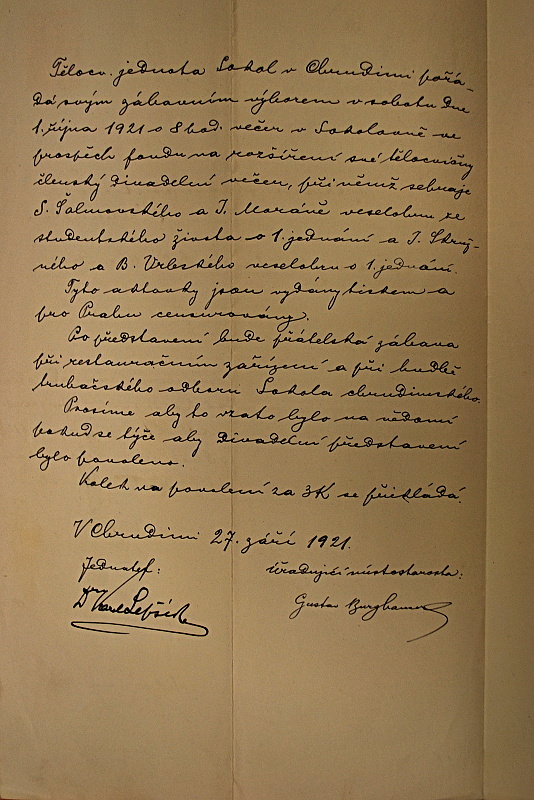 Tělocv. jednota Sokol v Chrudimi pořá-
dá svým zábavním výborem v sobotu dne
1. října 1921 o 8 hod. večer v Sokolovně ve
prospěch fondu na rozšíření své tělocvičny
členský divadelní večer, při němž sehraje
S. Šalmovského a J. Moráně veselohru ze
studentského života o 1. jednání a J.
ného a B. Vrbského veselohru o 1. jednání.
Tyto aktovky jsou vydány tiskem a
pro Prahu censurovány.
Po představení bude přátelská zábava
při restauračním zařízení a při hudbě
trubačského odboru Sokola chrudimského.
Prosíme aby to vzato bylo na vědomí
pokud se týče aby divadelní představení
bylo povoleno.
Kolek na povolení za 3K se přikládá.
V Chrudimi 27. září 1921.
Jednatel: úřadující místostarosta:
Dr Karel Gustav Burghauser